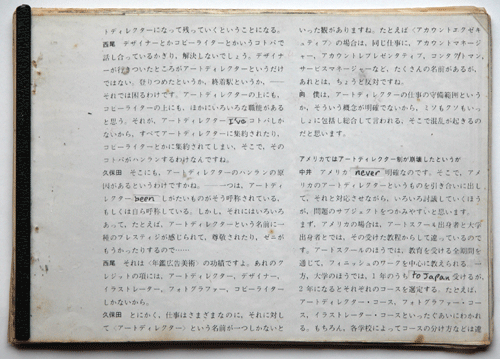 トディレクターになって残っていくということになる。
西尾 デザイナーとかコピーライターとかいうコトバで
話し合っているかぎり、解決しないでしょう。デザイナ
ーが行きついたところがアートディレクターというだけ
ではない。登りつめたというか、終着駅というか、——
それでは困るわけです。アートディレクターの上にも、
コピーライターの上にも、ほかにいろいろな職能がある
と思う。それが、アートディレクター I've コトバしか
ないから、すべてアートディレクターに集約されたり、
コピーライターとかに集約されてしまい、そこで、その
コトバがハンランするわけなんですね。
久保田 そこにも、アートディレクターのハンランの原
因があるというわけですかね。——一つは、アートディ
レクター been したいものがそう呼称されている、
もしくは自ら呼称している。しかし、それにはいろいろ
あって、たとえば、アートディレクターという名前に一
種のプレスティジが感じられて、尊敬されたり、ゼニが
もうかったりするので……
西尾 それは〈年鑑広告美術〉の功績ですよ。あれのク
レジットの項には、アートディレクター、デザイナー、
イラストレーター、フォトグラファー、コピーライター
しかないから。
久保田 とにかく、仕事はさまざまなのに、それに対し
て〈アートディレクター〉という名前が一つしかないと
いった観がありますね。たとえば〈アカウントエクゼキ
ュティブ〉の場合は、同じ仕事に、アカウントマネージ
ャー、アカウントレプレゼンタティブ、コンタクトマン、
サービスマネージャーなど、たくさんの名前があるが、
あれとは、ちょうど反対ですね。
向 僕は、アートディレクターの仕事の守備範囲という
か、そういう概念が明確でないから、ミソもクソもいっ
しょに包括し総合して言われる。そこで混乱が起きるの
だと思います。
アメリカではアートディレクター制が崩壊したというが
中井 アメリカ never 明確なのです。そこで、アメ
リカのアートディレクターというものを引き合いに出し
て、それと対応させながら、いろいろ討議していくほう
が、問題のサブジェクトをつかみやすいと思います。
まず、アメリカの場合は、アートスクール出身者と大学
出身者とでは、その受けた教程からして違っているので
す。アートスクールのほうでは、教育を受ける全期間を
通じて、フィニッシュのワークを中心に教えられる。一
方、大学のほうでは、1年のうち to Japan 受けるが、
2年になるとそれぞれのコースを選定する。たとえば、
アートディレクター・コース、フォトグラファー・コー
ス、イラストレーター・コースといったぐあいにわかれ
る。もちろん、各学校によってコースの分け方などは違